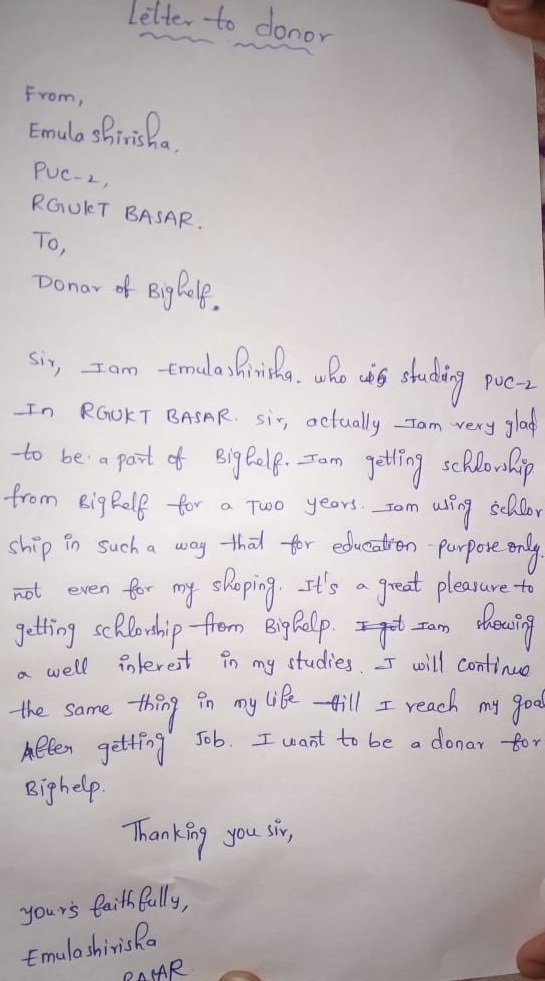 Letter to donor
From,
Emula shirisha,
PUC-2,
RGUKT BASAR.
To,
Donar of Bighelp.
Sir, Iam Emulashirisha. who is studing PUC-2
In RGUKT BASAR. sir, actually Iam very glad
to be a part of Bighelp. Iam getting schlorship
from Bighelp for a Two years. Iam using schlor
ship in such a way that for education purpose only.
not even for my shoping. It's a great pleasure to
getting schlorship from Bighelp. I got Iam showing
a well interest in my studies. I will continue
the same thing in my life till I reach my goal
After getting Job. I want to be a donar for
Bighelp.
Thanking you sir,
your's faithfully,
Emulashirisha
BASAR